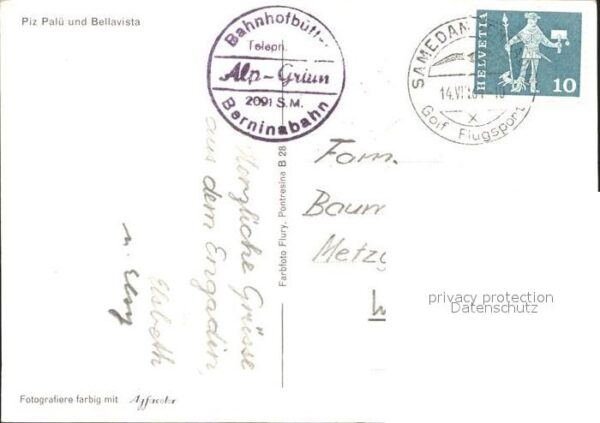 Piz Palü und Bellavista
Bahnhofbüffet
Teleph.
Alp-Grüm
2091 S.M.
Berninabahn
SAMEDAN
14.VI.
Golf Flugsport
HELVETIA
10
Herzliche Grüsse
aus dem Engadin,
Elsbeth
Farbfoto Flury, Pontresina B 28
Fam.
Baum
Metzg
privacy protection
Datenschutz
Fotografiere farbig mit Agfacolor